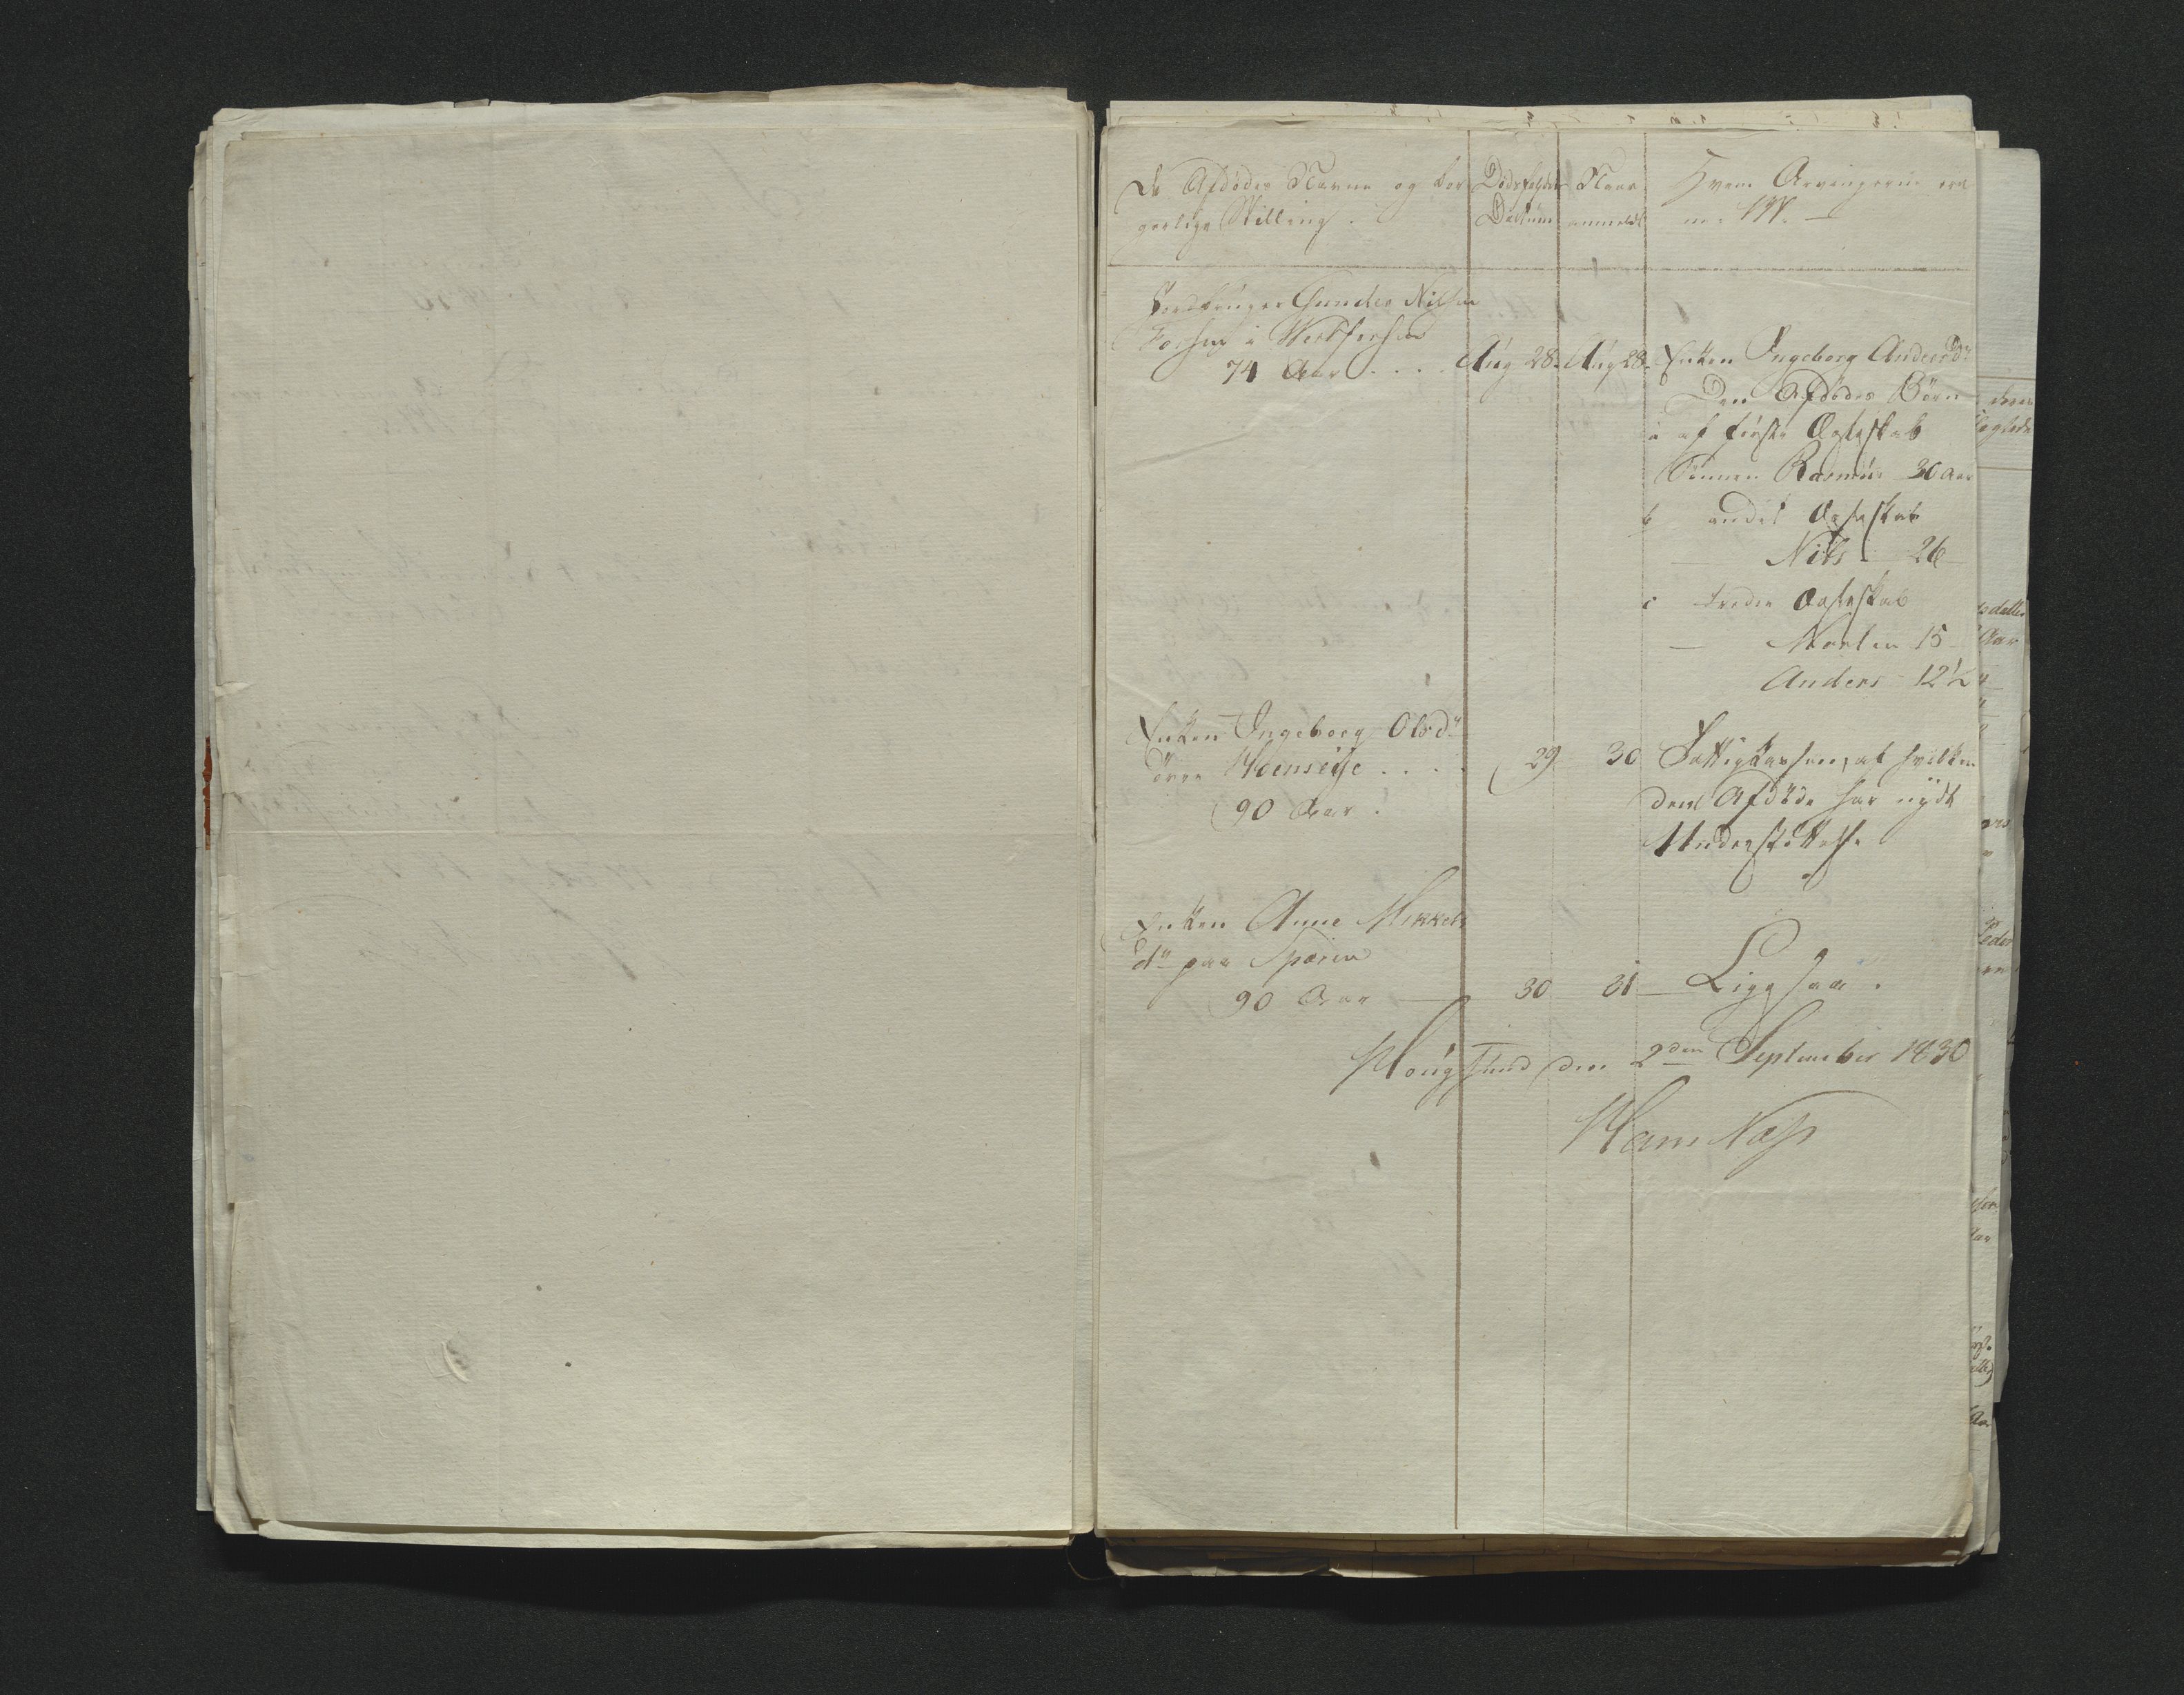 De Afdødes Navne og bor-
gerlige Stilling.
Dødsfaldets
Datum
Naar
anmeldt
Hvem Arvingerne ere
m. M. —
Jordbruger Gunder Nilsen
i Westfossen
74 Aar . . . . Aug 28. Aug 28. Enken Ingeborg Andersd.
Den Afdødes Børn
a af første Ægteskab
Sønnen Rasmus 30 Aar
b andet Ægteskab
— Nils — 26 —
c tredie Ægteskab
— Morten 15 —
Anders 12½
Enken Ingeborg Olsd.
øvre Hoenseije . . . . 29 30 Fattigkassen, af hvilken
90 Aar .
den Afdøde har nydt
Understøttelse
Enken Anne Mikkels
d. paa Sporin
90 Aar — 30 31 — Ligesaa .
Hougsund den 2den September 1830
Hans Næss